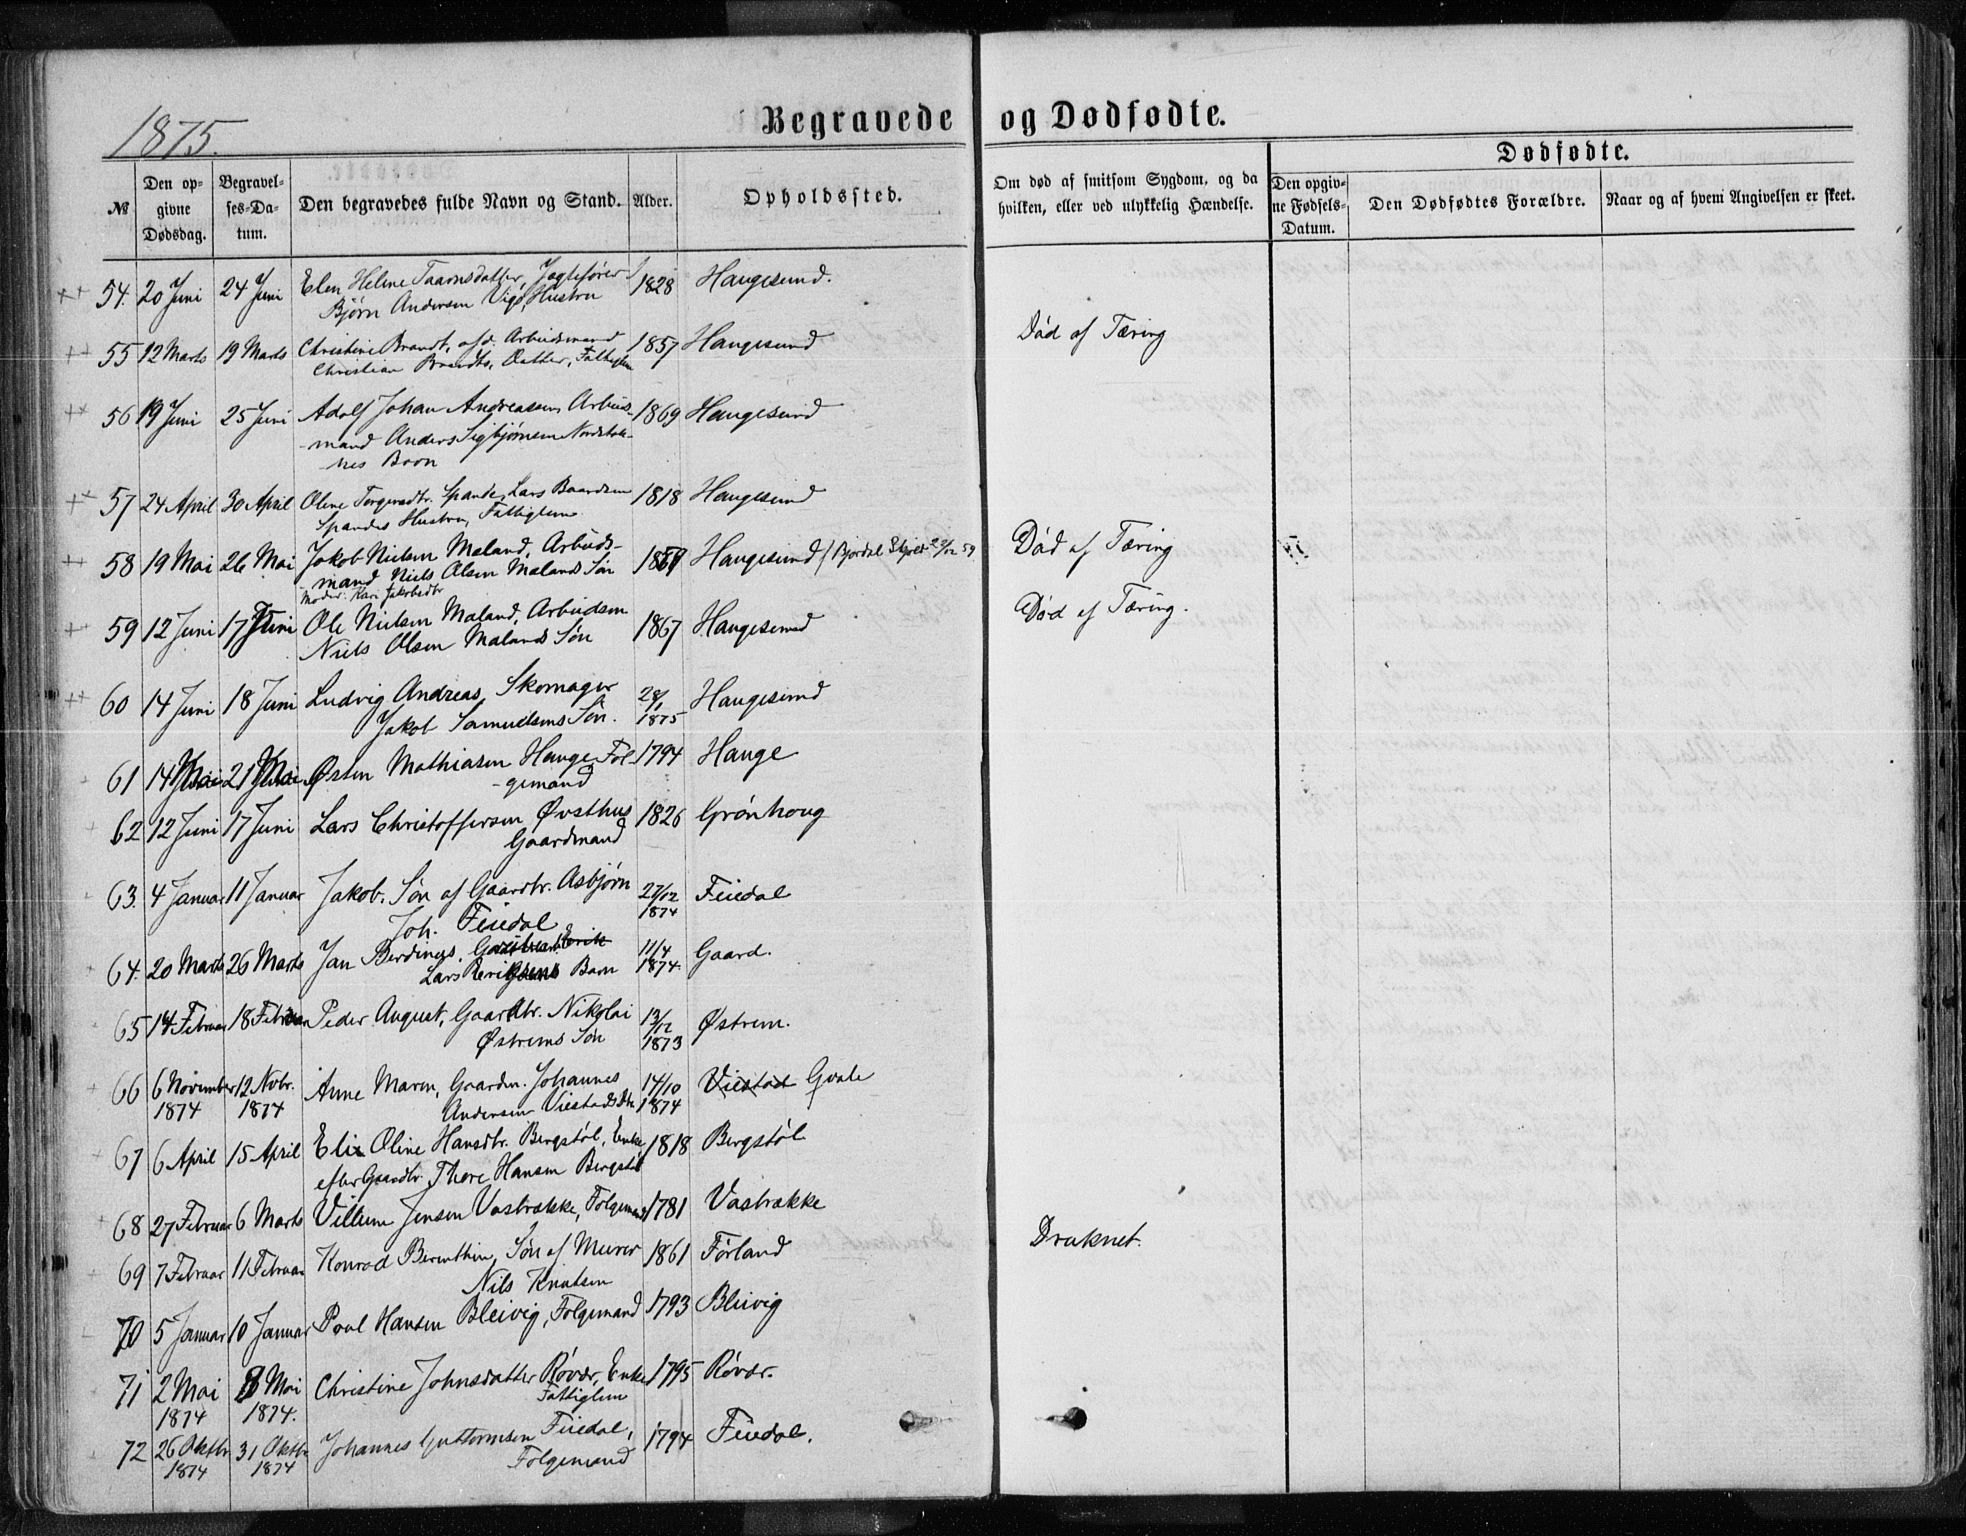 1875.
Begravede og Dødfødte.
Dødfødte.
№
Den opgivne Dødsdag.
Begravelses-Datum.
Den begravedes fulde Navn og Stand.
Alder.
Opholdssted.
Om død af smitsom Sygdom, og da hvilken, eller ved ulykkelig Hændelse.
Den opgivne Fødsels-Datum.
Den Dødfødtes Forældre.
Naar og af hvem Angivelsen er skeet.
54. 20 Juni 24 Juni Elen Helene Taarnsdatter, Jagtefører 1828 Haugesund.
Bjørn Andersen Hustru
55 12 Marts 19 Marts Christine Brandt, afd. Arbeidsmand 1857 Haugesund Død af Tæring
Christian Brandts, Datter, Fattiglem
56 19 Juni 25 Juni Adolf Johan Andreasen, Arbeids- 1869 Haugesund
mand Anders Sigbjørnsen
nes Barn
57 24 April 30 April Oline Torgersdtr. Spande, Lars Baardsen 1818 Haugesund
Spandes Hustru, Fattiglem
58 19 Mai 26 Mai Jakob Nielsen Maland, Arbeids- Haugesund Død af Tæring
mand Niels Olsen Malands Søn
Moder: Kari Jakobsdtr
59 12 Juni 17 Juni Ole Nielsen Maland, Arbeidsm 1867 Haugesund Død af Tæring.
Niels Olsen Malands Søn
60 14 Juni 18 Juni Ludvig Andreas, Skomager 28/1 Haugesund
Jakob Samuelsens Søn. 1875
61 14 Mai 21 Mai Østen Mathiasen Hauge Fol- 1794 Hauge
gemand
62 12 Juni 17 Juni Lars Christoffersen Øvsthus 1826 Grønhoug
Gaardmand
63. 4 Januar 11 Januar Jakob, Søn af Gaardbr. Asbjørn 27/12 Feiedal
Joh. Feiedal 1874
64. 20 Marts 26 Marts Jan Berdines, 11/4 Gaard.
Lars Barn 1874.
65 14 Februar 18 Februar Peder August, Gaardbr. Nikolai 13/12 Østrem.
Østrems Søn 1873
66 6 November 12 Novbr. Anne Maren, Gaardm. Johannes 14/10 Viestad Gvale
1874 1874 Andersen Viestads Dtr 1874
67 6 April 15 April Eli Oline Hansdtr. Bergstøl, Enke 1818 Bergstøl
efter Gaardbr. Thore Hansen Bergstøl
68 27 Februar 6 Marts Villum Jensen Vasbrække, Folgemand 1781 Vasbrække
69 7 Februar 11 Februar Konrad Berenthin, Søn af Murer 1861 Førland Druknet.
Nils Knutsen
70 5 Januar 10 Januar Poul Hansen Bleivig, Folgemand 1793 Bleivig
71 2 Mai 8 Mai Christine Johnsdatter Røvær, Enke 1795 Røvær.
1874 1874. Fattiglem
72 26 Oktbr 31 Oktbr Johannes Guttormsen Feiedal, 1794 Feiedal.
1874 1874 Folgemand